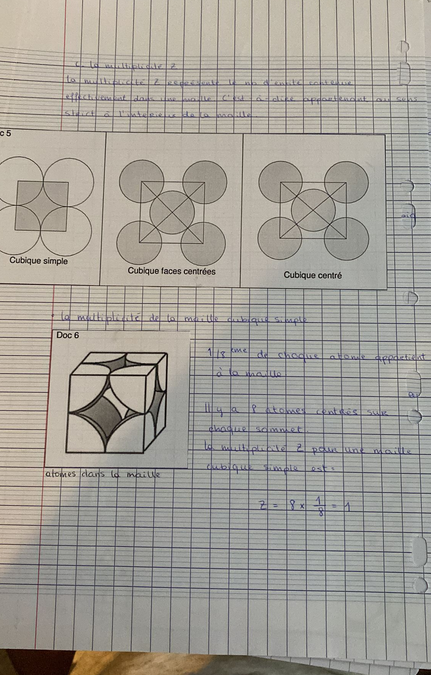 c. La multiplicité Z
La multiplicité Z représente le nb d'entité contenue
effectivement dans une maille c'est à dire appartenant au sens
strict à l'intérieur de la maille.
c 5
Cubique simple
Cubique faces centrées
Cubique centré
La multiplicité de la maille cubique simple
Doc 6
1/8 ème de chaque atome appartient
à la maille
Il y a 8 atomes centrés sur
chaque sommet.
La multiplicité Z pour une maille
cubique simple est:
atomes dans la maille
Z = 8 x 1/8 = 1